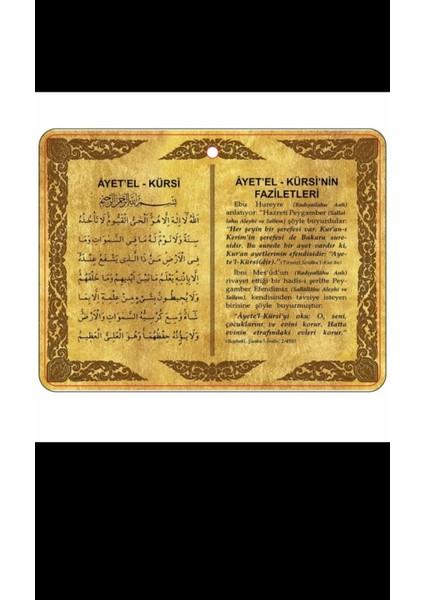 ÂYET'EL - KÜRSÎ
بِسْمِ اللّٰهِ الرَّحْمٰنِ الرَّحِيمِ
اَللّٰهُ لَا اِلٰهَ اِلَّا هُوَ الْحَيُّ الْقَيُّومُ لَا تَأْخُذُهُ
سِنَةٌ وَلَا نَوْمٌ لَهُ مَا فِى السَّمٰوَاتِ وَمَا
فِى الْاَرْضِ مَنْ ذَا الَّذِى يَشْفَعُ عِنْدَهُ
اِلَّا بِاِذْنِهِ يَعْلَمُ مَا بَيْنَ اَيْدِيهِمْ وَمَا خَلْفَهُمْ
وَلَا يُحِيطُونَ بِشَىْءٍ مِنْ عِلْمِهِ اِلَّا بِمَا
شَآءَ وَسِعَ كُرْسِيُّهُ السَّمٰوَاتِ وَالْاَرْضَ
وَلَا يَؤُدُهُ حِفْظُهُمَا وَهُوَ الْعَلِىُّ الْعَظِيمُ
ÂYET'EL - KÜRSÎ'NİN
FAZİLETLERİ
Ebu Hureyre (Radıyallâhu Anh)
anlatıyor: "Hazreti Peygamber (Sallal-
lahu Aleyhi ve Sellem) şöyle buyurdular:
"Her şeyin bir şerefesi var. Kur'an-ı
Kerim'in şerefesi de Bakara sure-
sidir. Bu surede bir ayet vardır ki,
Kur'an ayetlerinin efendisidir: "Aye-
te'l-Kürsi(dir)."
İbni Mes'ûd'un (Radıyallâhu Anh)
rivayet ettiği bir hadis-i şerifte Pey-
gamber Efendimiz (Sallâllâhu Aleyhi ve
Sellem), kendisinden tavsiye isteyen
birisine şöyle buyurmuştur:
"Âyete'l-Kürsî'yi oku; O, seni,
çocuklarını ve evini korur. Hatta
evinin etrafındaki evleri korur."